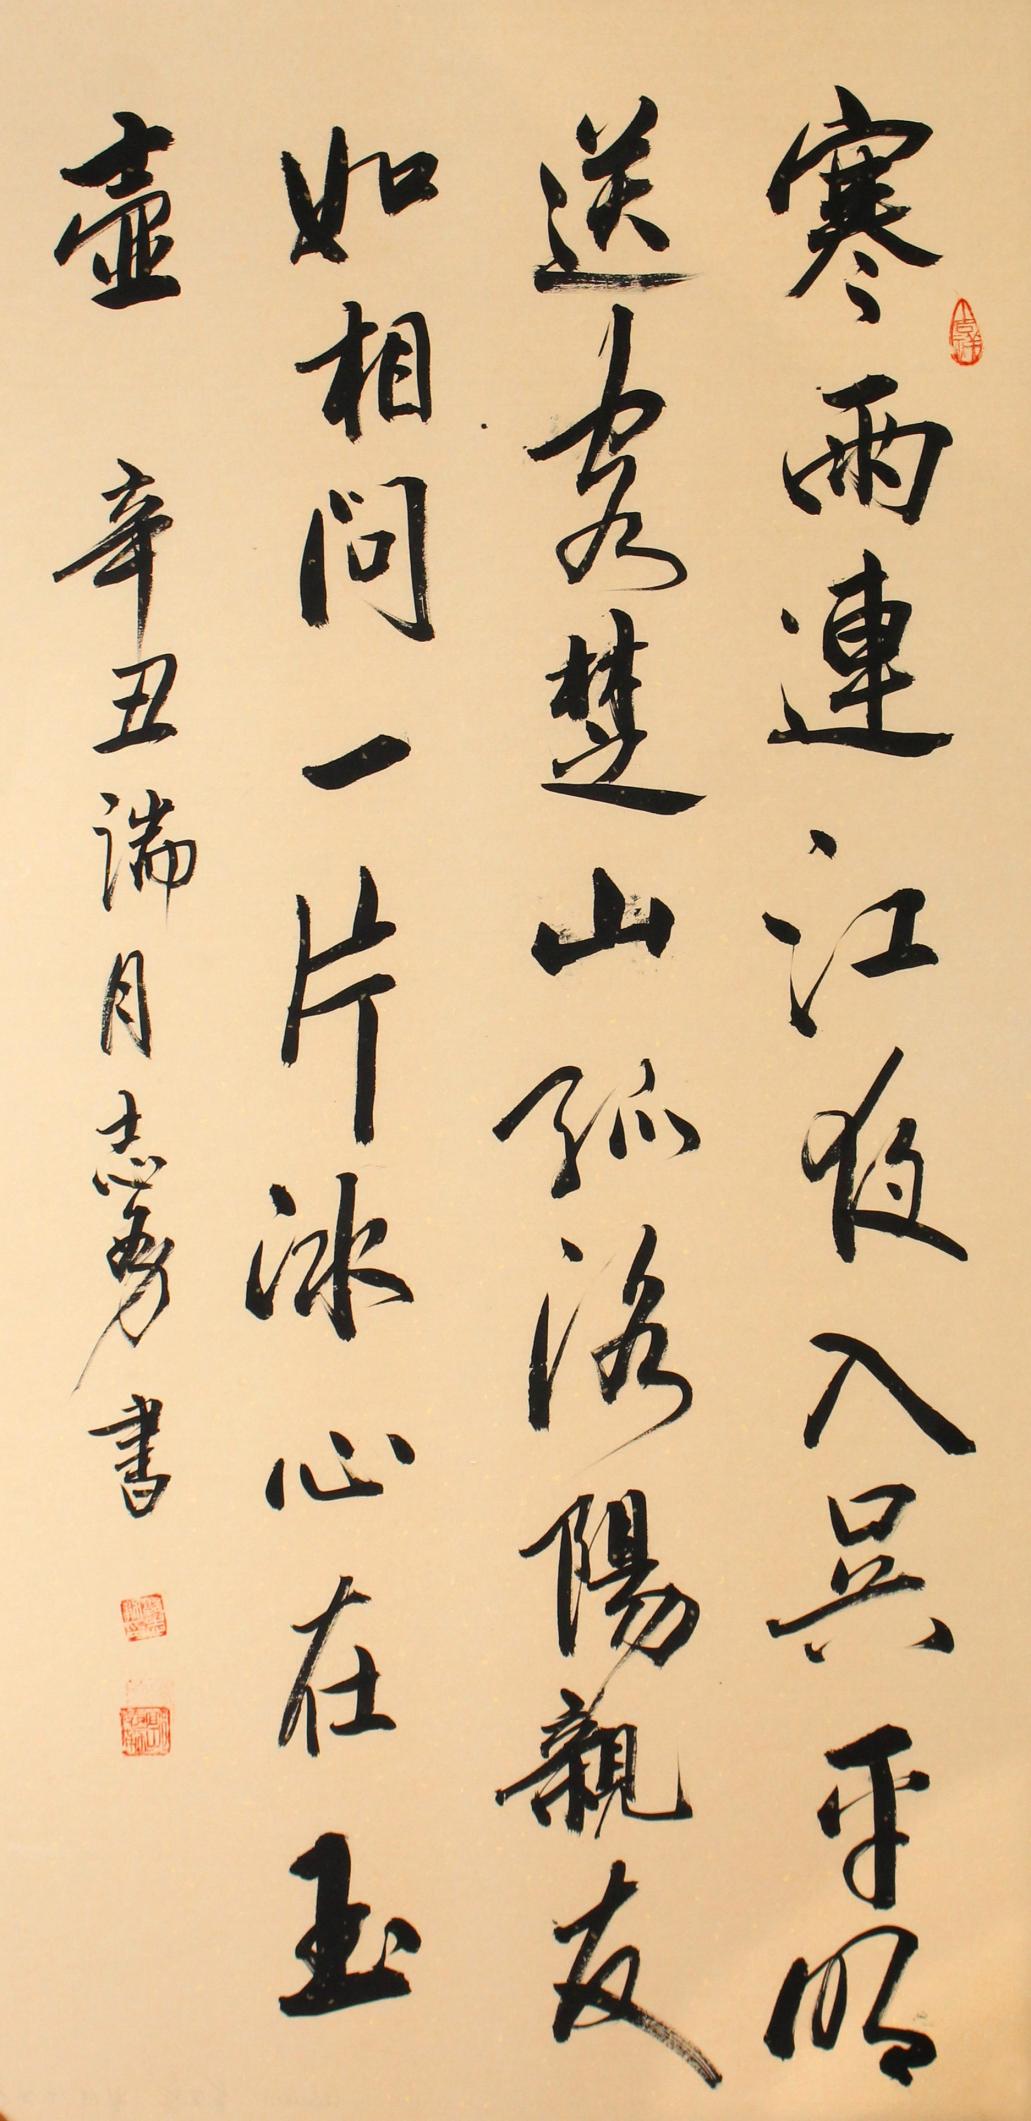 寒雨連江夜入吳平明
送客楚山孤洛陽親友
如相問一片冰心在玉
壺 辛丑端月志勇書
吉祥